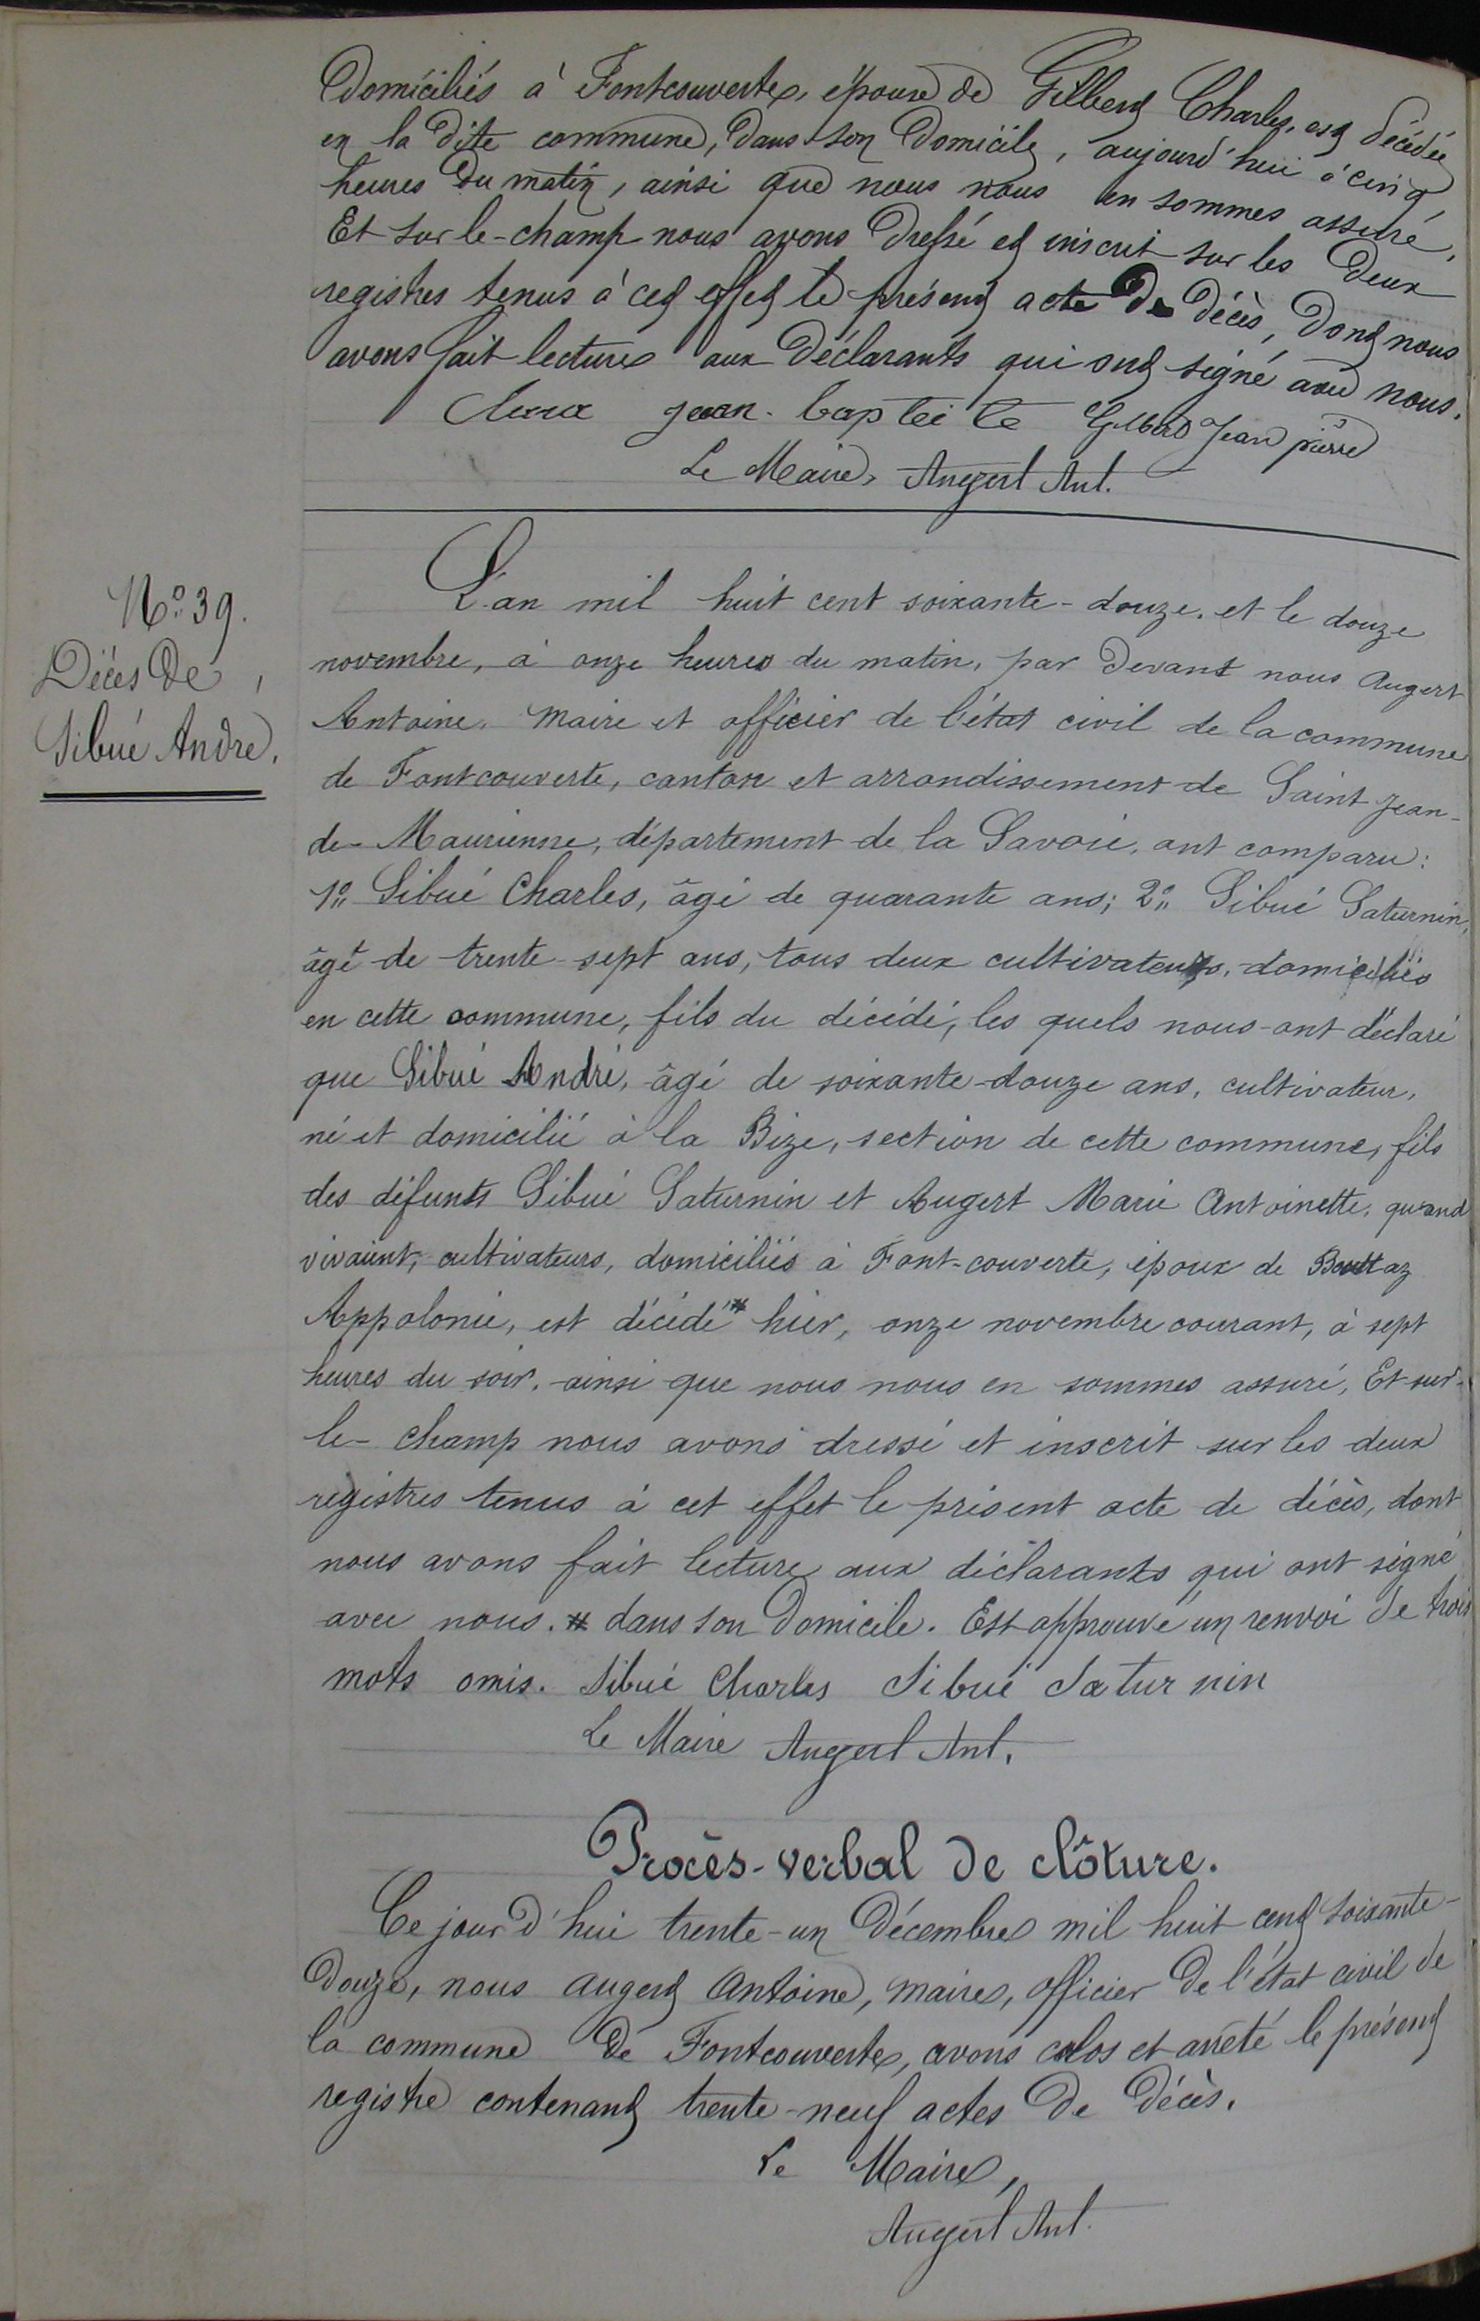 Domiciliés à Fontcouverte, épouse de Gilbert Charles, est décédée
en la dite commune, dans son domicile, aujourd'hui à cinq
heures du matin, ainsi que nous nous en sommes assuré.
Et sur le-champ nous avons dressé et inscrit sur les deux
registres tenus à cet effet le présent acte de décès, dont nous
avons fait lecture aux déclarants qui ont signé avec nous.
jean-baptei te Gilbert Jean pierre
Le Maire, Augert Ant.
N° 39.
Décès de
Sibué Andre.
L'an mil huit cent soixante-douze, et le douze
novembre, à onze heures du matin, par devant nous Augert
Antoine, Maire et officier de l'état civil de la commune
de Fontcouverte, canton et arrondissement de Saint Jean-
de-Maurienne, département de la Savoie, ont comparu:
1° Sibué Charles, âgé de quarante ans; 2° Sibué Saturnin,
âgé de trente sept ans, tous deux cultivateurs, domiciliés
en cette commune, fils du décédé, les quels nous ont déclaré
que Sibué André, âgé de soixante-douze ans, cultivateur,
né et domicilié à la Bize, section de cette commune, fils
des défunts Sibué Saturnin et Augert Marie Antoinette, quand
vivaient, cultivateurs, domiciliés à Font-couverte, époux de
Appolonie, est décédé # hier, onze novembre courant, à sept
heures du soir, ainsi que nous nous en sommes assuré, Et sur-
le-champ nous avons dressé et inscrit sur les deux
registres tenus à cet effet le présent acte de décès, dont
nous avons fait lecture aux déclarants qui ont signé
avec nous. # dans son Domicile. Est approuvé un renvoi de trois
mots omis. Sibué Charles Sibué Saturnin
Le Maire Augert Ant.
Procès-verbal de clôture.
Ce jour d'hui trente-un Décembre mil huit cent soixante-
Douze, nous Augert Antoine, Maire, officier de l'état civil de
la commune de Fontcouverte, avons clos et arrêté le présent
registre contenant trente-neuf actes de décès.
Le Maire,
Augert Ant.